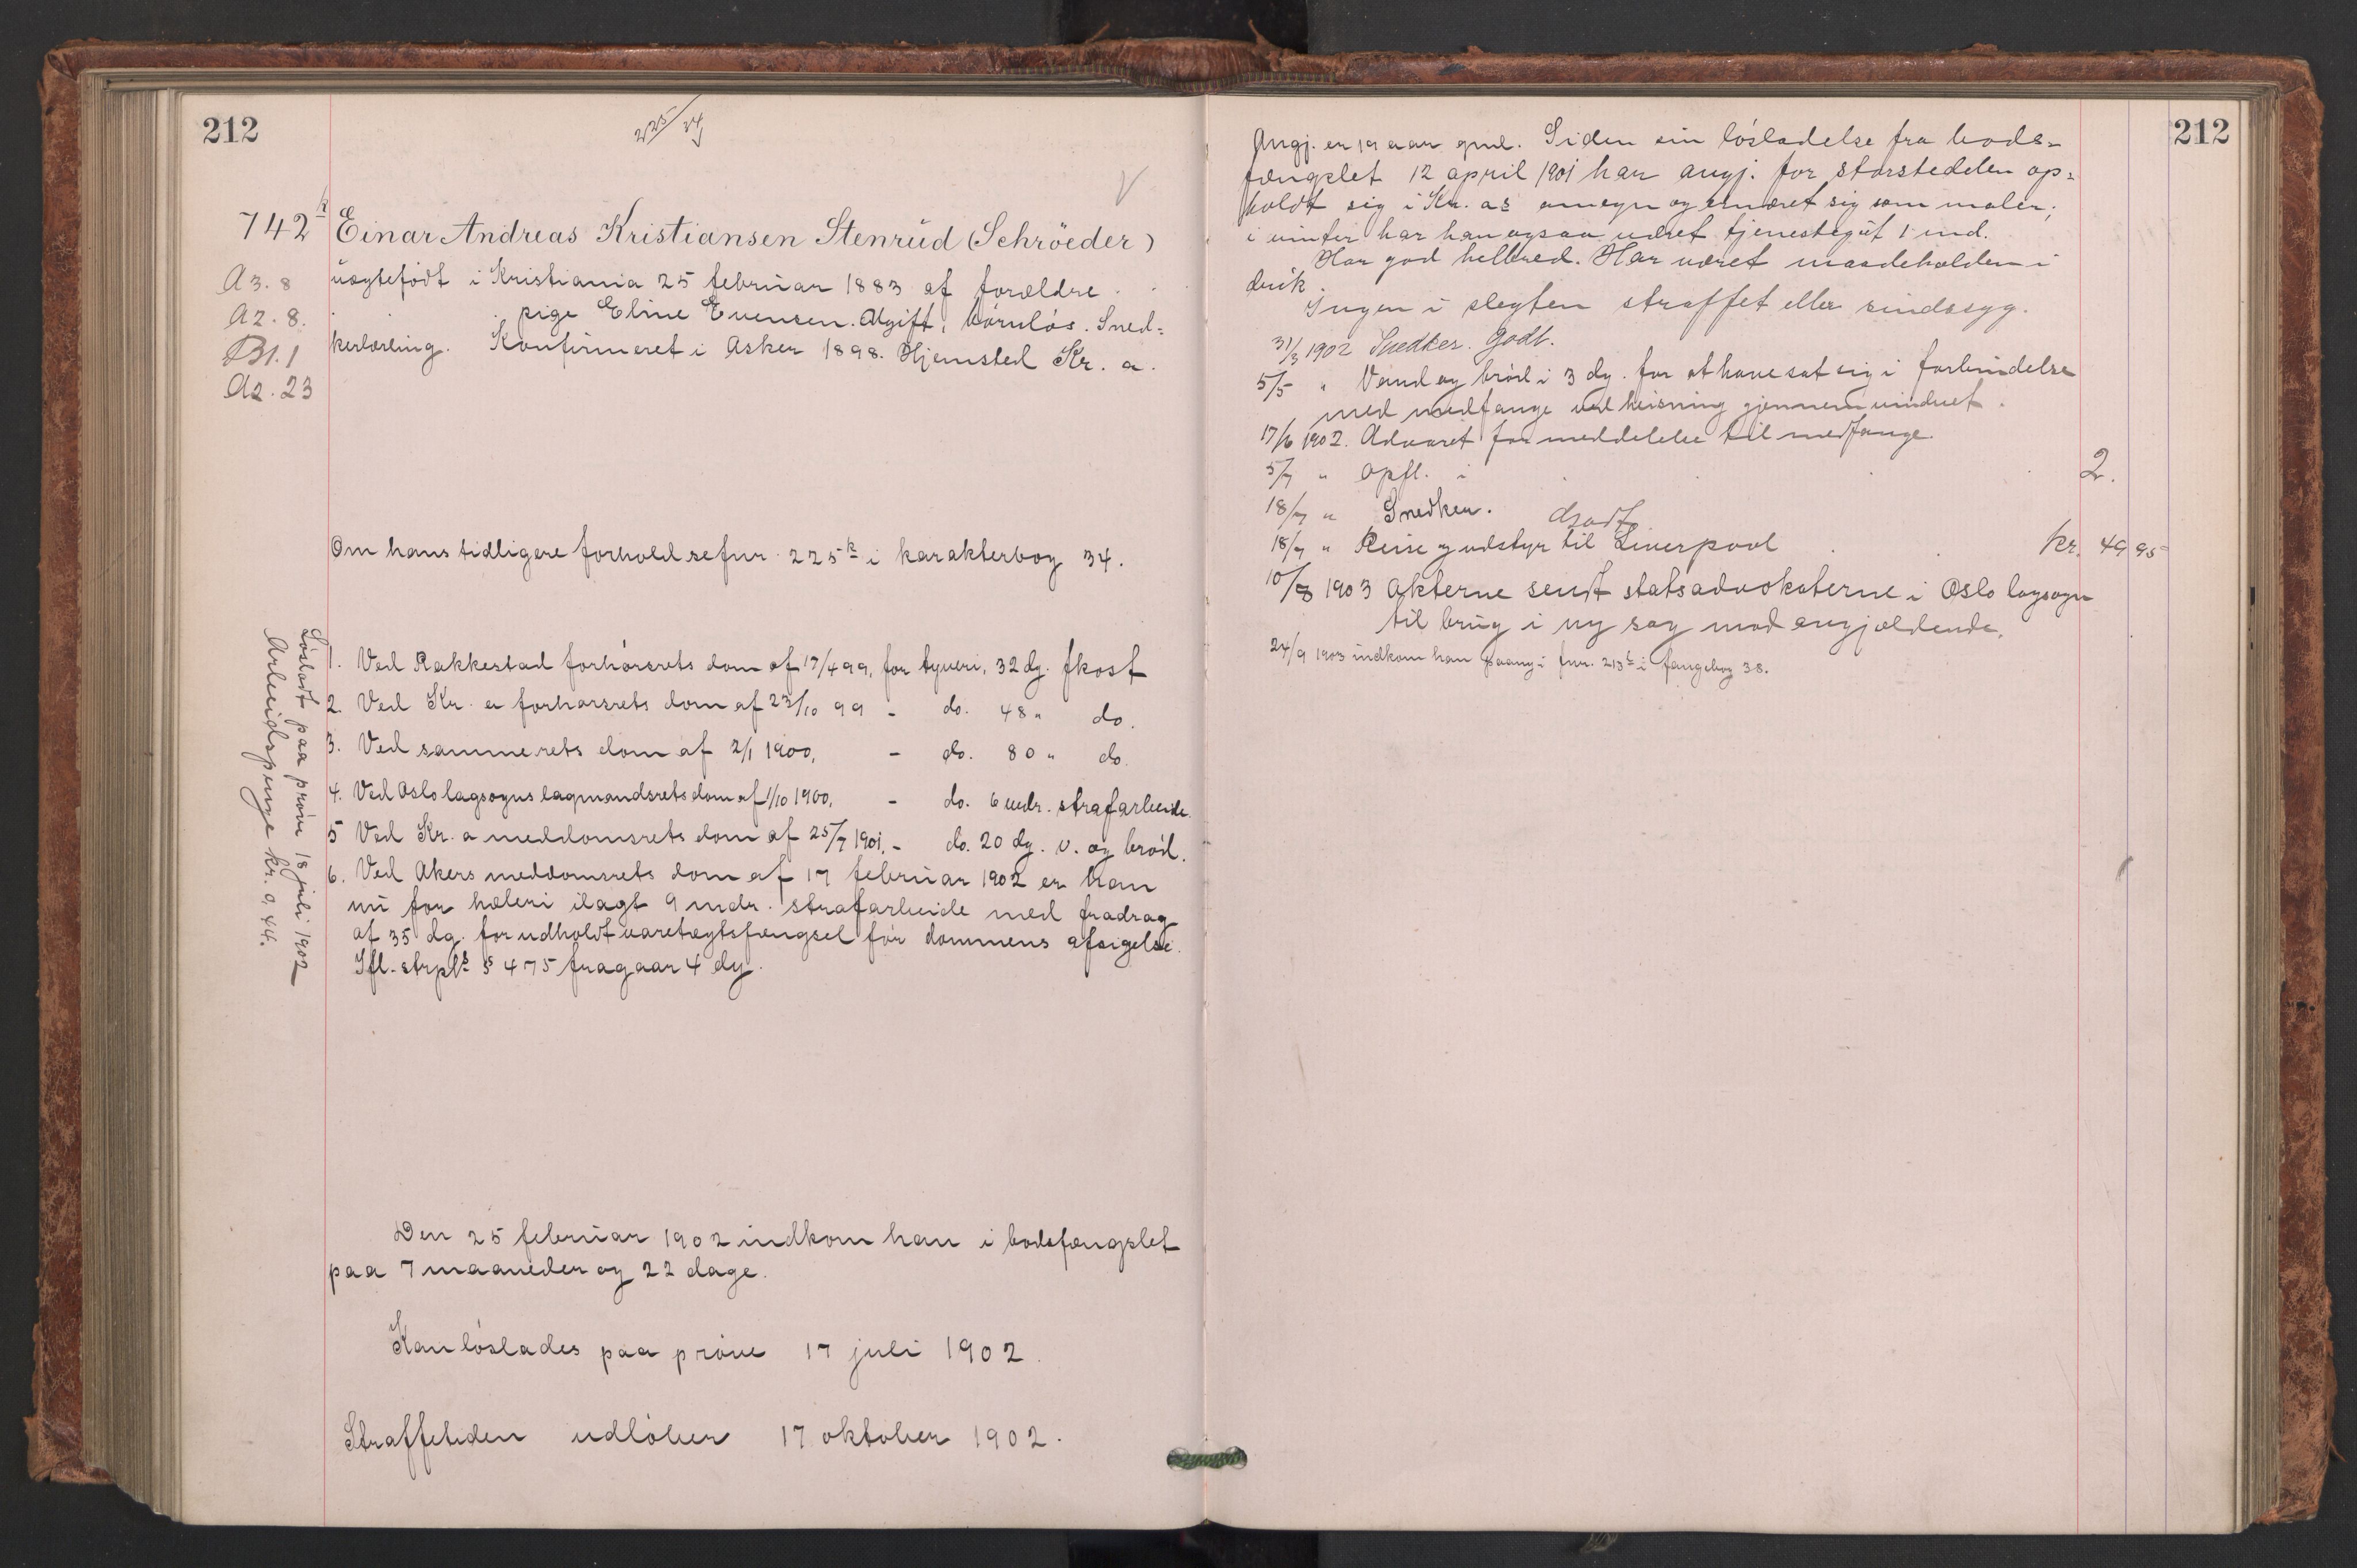 212
225/34
V
742 k Einar Andreas Kristiansen Stenrud (Schröeder)
A3.8
A2.8.
B1.1
A2.23
uægtefödt i Kristiania 25 februar 1883 af forældre
pige Eline Evensen. Ugift, börnlös. Sned=
kerlærling. Konfirmeret i Asker 1898. Hjemsted Kr. a.
Om hans tidligere forhold se fnr. 225 k i karakterbog 34.
1. Ved Rakkestad forhörsrets dom af 17/4 99, for tyveri, 32 dg. fkost
2. Ved Kr. a forhörsrets dom af 23/10 99 - do. 48 " do.
3. Ved samme rets dom af 2/1 1900, - do. 80 " do.
4. Ved Oslo lagsogns lagmandsrets dom af 1/10 1900, - do. 6 mdr. strafarbeide.
5 Ved Kr. a meddomsrets dom af 25/7 1901, - do. 20 dg. v. og bröd.
6. Ved Akers meddomsrets dom af 17 februar 1902 er han
nu for hæleri ilagt 9 mdr. strafarbeide med fradrag
af 35 dg. for udholdt varetægtsfængsel för dommens afsigelse.
Ifl. strpl. § 475 fragaar 4 dg.
Lösladt paa pröve 18 juli 1902
Arbeidspenge kr. 9,44.
Den 25 februar 1902 indkom han i bodsfængslet
paa 7 maaneder og 22 dage.
Kan löslades paa pröve 17 juli 1902.
Straffetiden udlöber 17 oktober 1902.
212
Angj. er 19 aar gml. Siden sin lösladelse fra bods=
fængslet 12 april 1901 har angj. for störstedelen op=
holdt sig i Kr. as omegn og ernæret sig som maler,
i vinter har han ogsaa været tjenestegut 1 md.
Har god helbred. Har været maadeholden i
drik.
Ingen i slegten straffet eller sindssyg.
31/3 1902 Snedker. Godt.
5/5 " Vand og bröd i 3 dg. for at have sat sig i forbindelse
med medfange ved heisning gjennem vinduet.
17/6 1902. Advaret for meddelelse til medfange.
5/7 " Opfl. i 2.
18/7 " Snedker. Godt.
18/7 " Reise og udstyr til Liverpool kr. 49 95
10/8 1903 Akterne sendt statsadvokaterne i Oslo lagsogn
til brug i ny sag mod angjældende.
24/9 1903 indkom han paany i fnr. 213 k i fangebog 38.